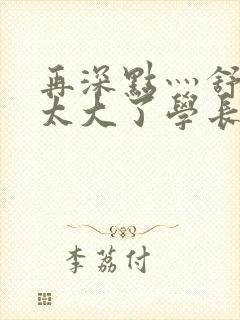 再深點灬舒
太大了學長
李荔付